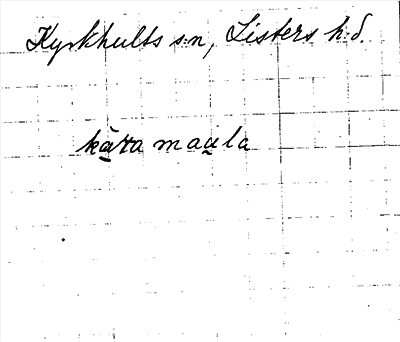 Kyrkhults s:n, Listers h:d.
kä̱tta mau̱la